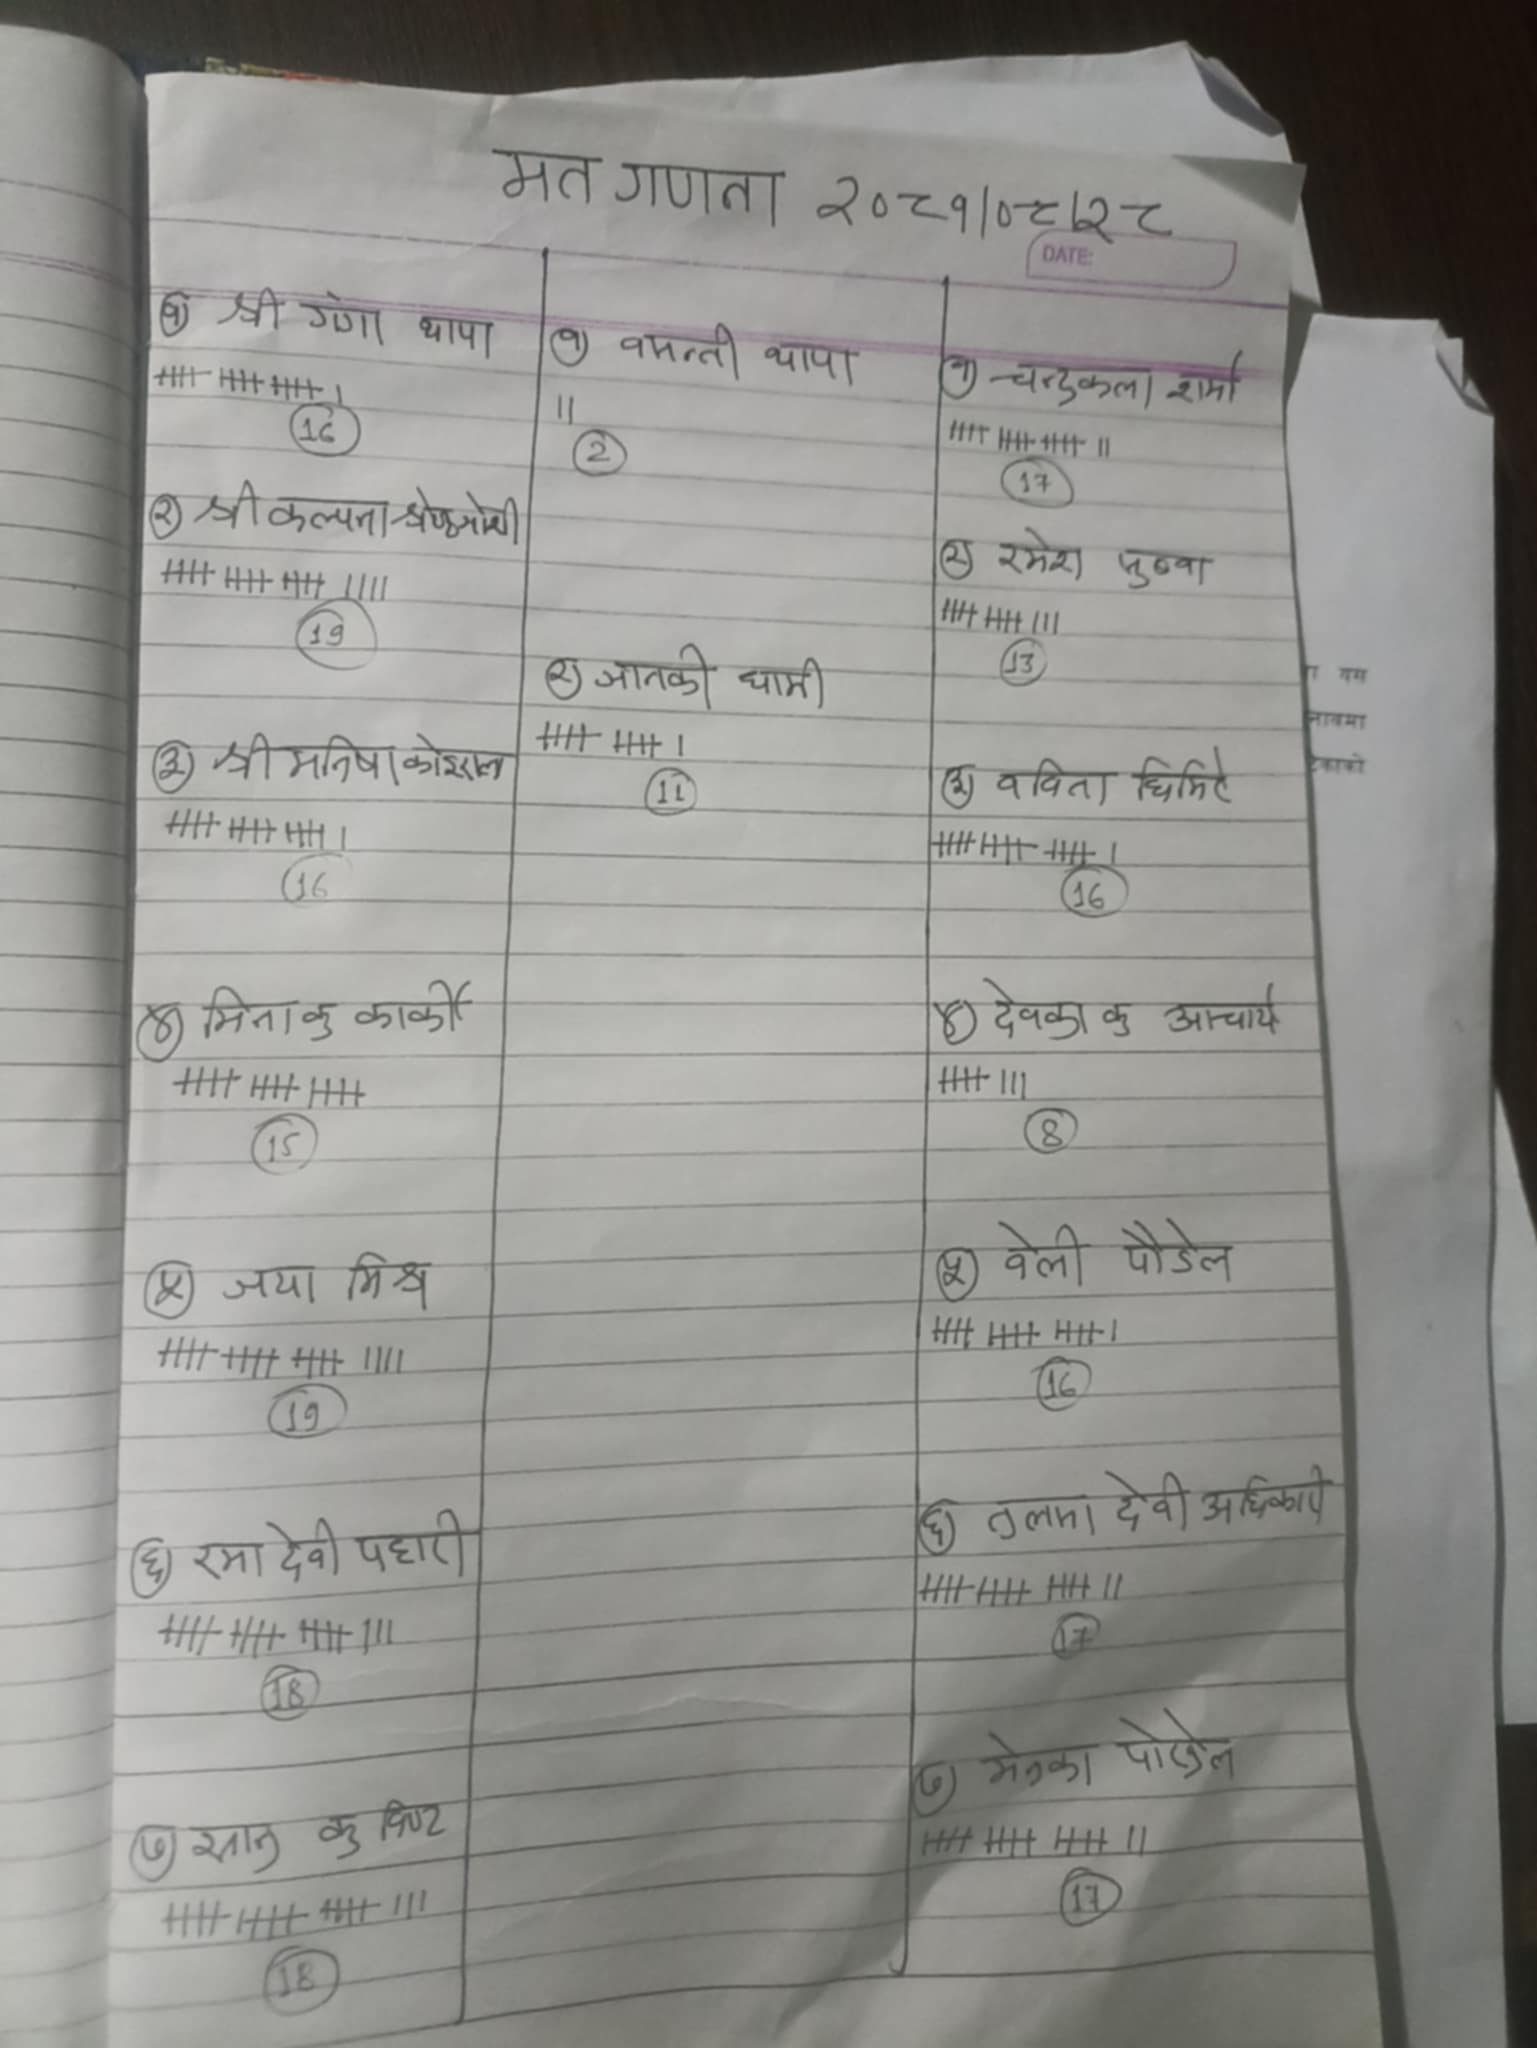 मत गणना २०८१/०८/२८
DATE:
१) श्री गंगा थापा
16
२) श्री कल्पना श्रेष्ठ जोशी
19
३) श्री मनिषा कोइराला
16
४) मिना कु कार्की
15
५) जया मिश्र
19
६) रमा देवी पहारी
18
७) कु विष्ट
18
१) वसन्ती थापा
2
२) जानकी धामी
11
१) चन्द्रकला शर्मा
17
२) रमेश
13
३) वविता घिमिरे
16
४) देवका कु आचार्य
8
५) वेली पौडेल
16
६) देवी अधिकारी
17
७) मेनका पौडेल
17